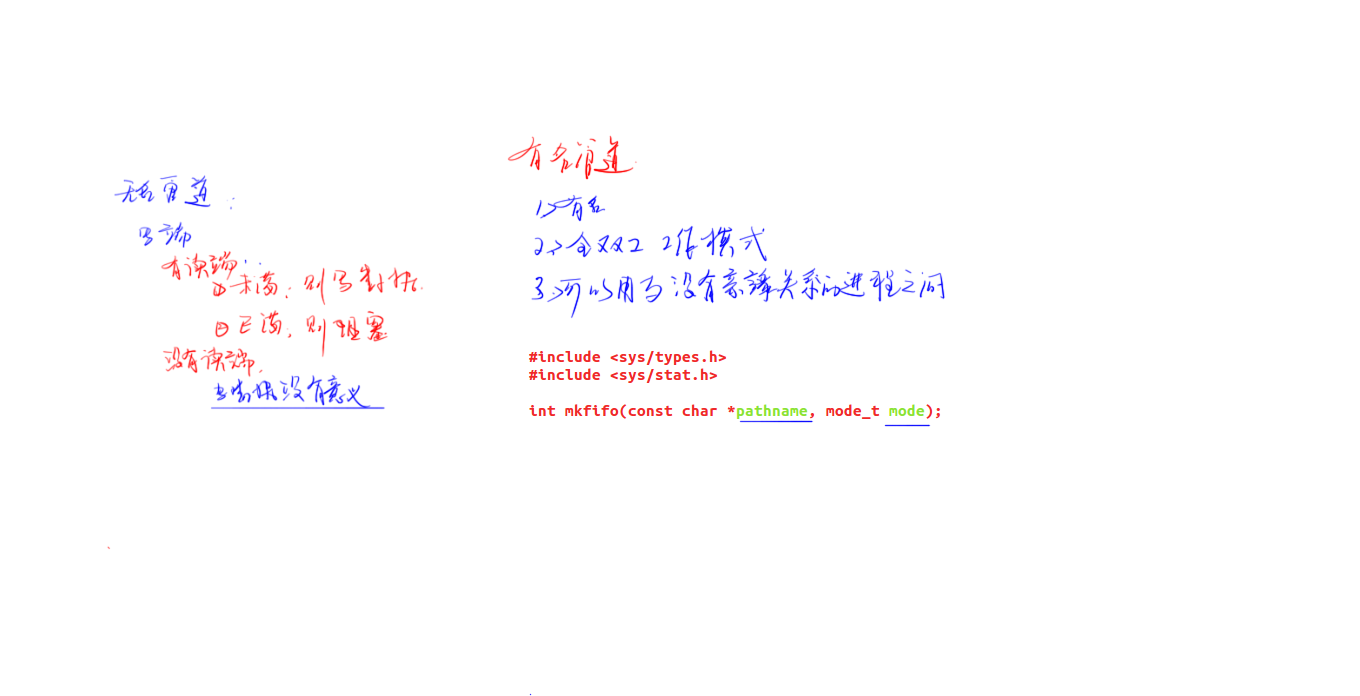 无名管道:
写端
有读端:
① 未满: 则写数据.
② 已满, 则阻塞
没有读端.
写数据没有意义
有名管道
1> 有名
2> 全双工 工作模式
3> 可以用于没有亲缘关系的进程之间
#include <sys/types.h>
#include <sys/stat.h>
int mkfifo(const char *pathname, mode_t mode);